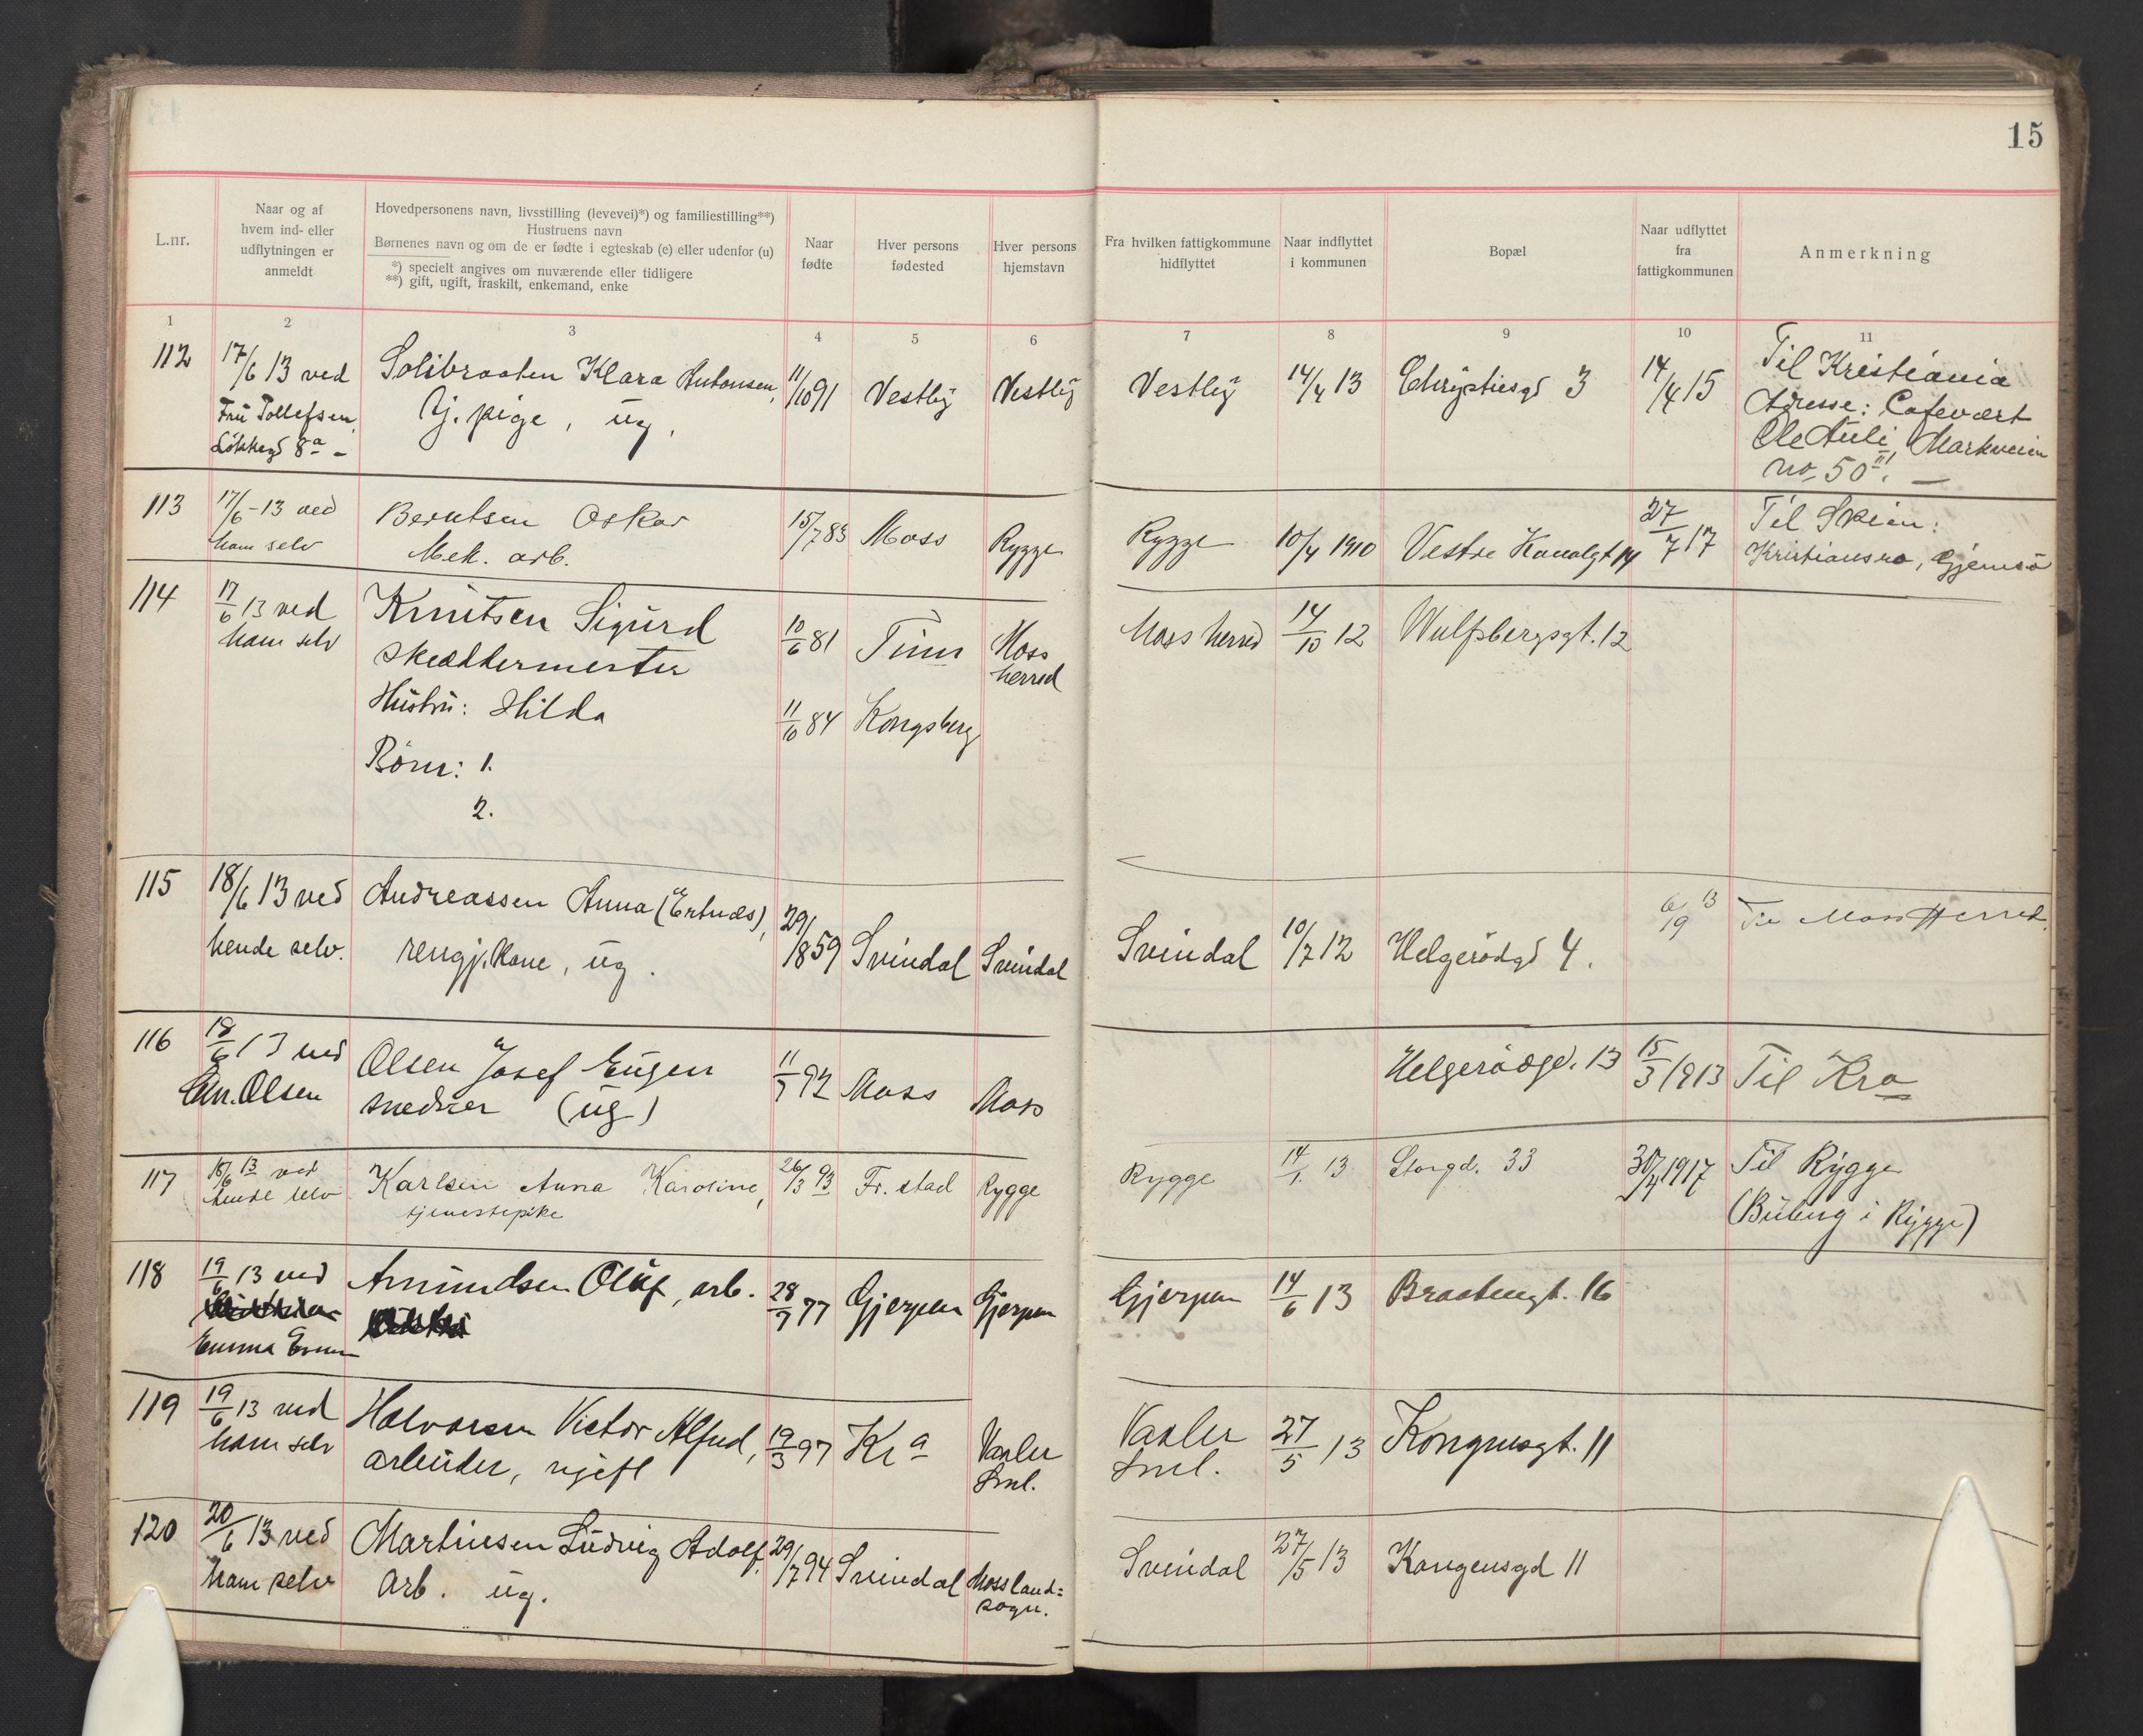 15
L.nr.
Naar og af
hvem ind- eller
udflytningen er
anmeldt
Hovedpersonens navn, livsstilling (levevei)*) og familiestilling**)
Hustruens navn
Børnenes navn og om de er fødte i egteskab (e) eller udenfor (u)
*) specielt angives om nuværende eller tidligere
**) gift, ugift, fraskilt, enkemand, enke
Naar
fødte
Hver persons
fødested
Hver persons
hjemstavn
Fra hvilken fattigkommune
hidflyttet
Naar indflyttet
i kommunen
Bopæl
Naar udflyttet
fra
fattigkommunen
Anmerkning
1 2 3 4 5 6 7 8 9 10 11
112 17/6 13 ved Solibraaten Klara Antonsen, 11/10 91 Vestby Vestby Vestby 14/4 13 Chrystiesgd 3 14/4 15 Til Kristiania
Fru Tollefsen, tj. pige, ug, Adresse: Cafevært
Løkkegd 8a - Ole Auli, Markveien
no 50 III. -
113 17/6-13 ved Berntsen Oskar 15/7 83 Moss Rygge Rygge 10/4 1910 Vestre Kanalgt 14 27/7 17 Til Skien:
ham selv Mek. arb. Kristiansro, Gjemsø
114 17/6 13 ved Knutsen Sigurd 10/6 81 Tinn Moss Moss herred 14/10 12 Wulfsbergsgt. 12
ham selv skræddermester herred
Hustru: Hilda 11/6 84 Kongsberg
Børn: 1.
2.
115 18/6 13 ved Andreassen Anna 29/1 859 Svindal Svindal Svindal 10/7 12 Helgerødgd 4. 6/9 13 Til Moss Herred.
hende selv. rengj.kone, ug.
116 18/6 13 ved Olsen Josef Eugen 11/7 92 Moss Moss Helgerødgd. 13 15/3 1913 Til Kra
Chr. Olsen snedker (ug)
117 18/6 13 ved Karlsen Anna Karoline, 26/3 93 Fr. stad Rygge Rygge 14/1 13 Storgd. 33 30/4 1917 Til Rygge
hende selv tjenestepike i Rygge)
118 19/6 13 ved Amundsen Oluf, arb. 28/7 77 Gjerpen Gjerpen Gjerpen 14/6 13 Braatengt. 16
Emma
119 19/6 13 ved Halvorsen Victor Alfred, 19/3 97 Kra Vaaler Vaaler 27/5 13 Kongensgt. 11
ham selv arbeider, ugift Sml. Sml.
120 20/6 13 ved Martinsen Ludvig Adolf. 29/7 94 Svindal Moss land= Svindal 27/5 13 Kongensgd 11
ham selv arb. ug. sogn.